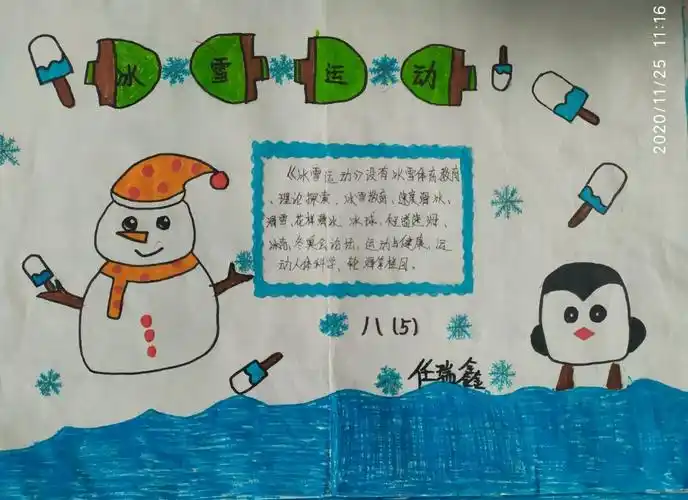 冰雪运动
《冰雪运动》设有冰雪体育教育
、理论探索、冰雪教育、速度滑冰、
滑雪、花样滑冰、冰球、短道速滑、
冰壶、冬奥会论坛、运动与健康、运
动人体科学、轮滑等栏目。
八(5)
任瑞鑫
2020/11/25 11:16